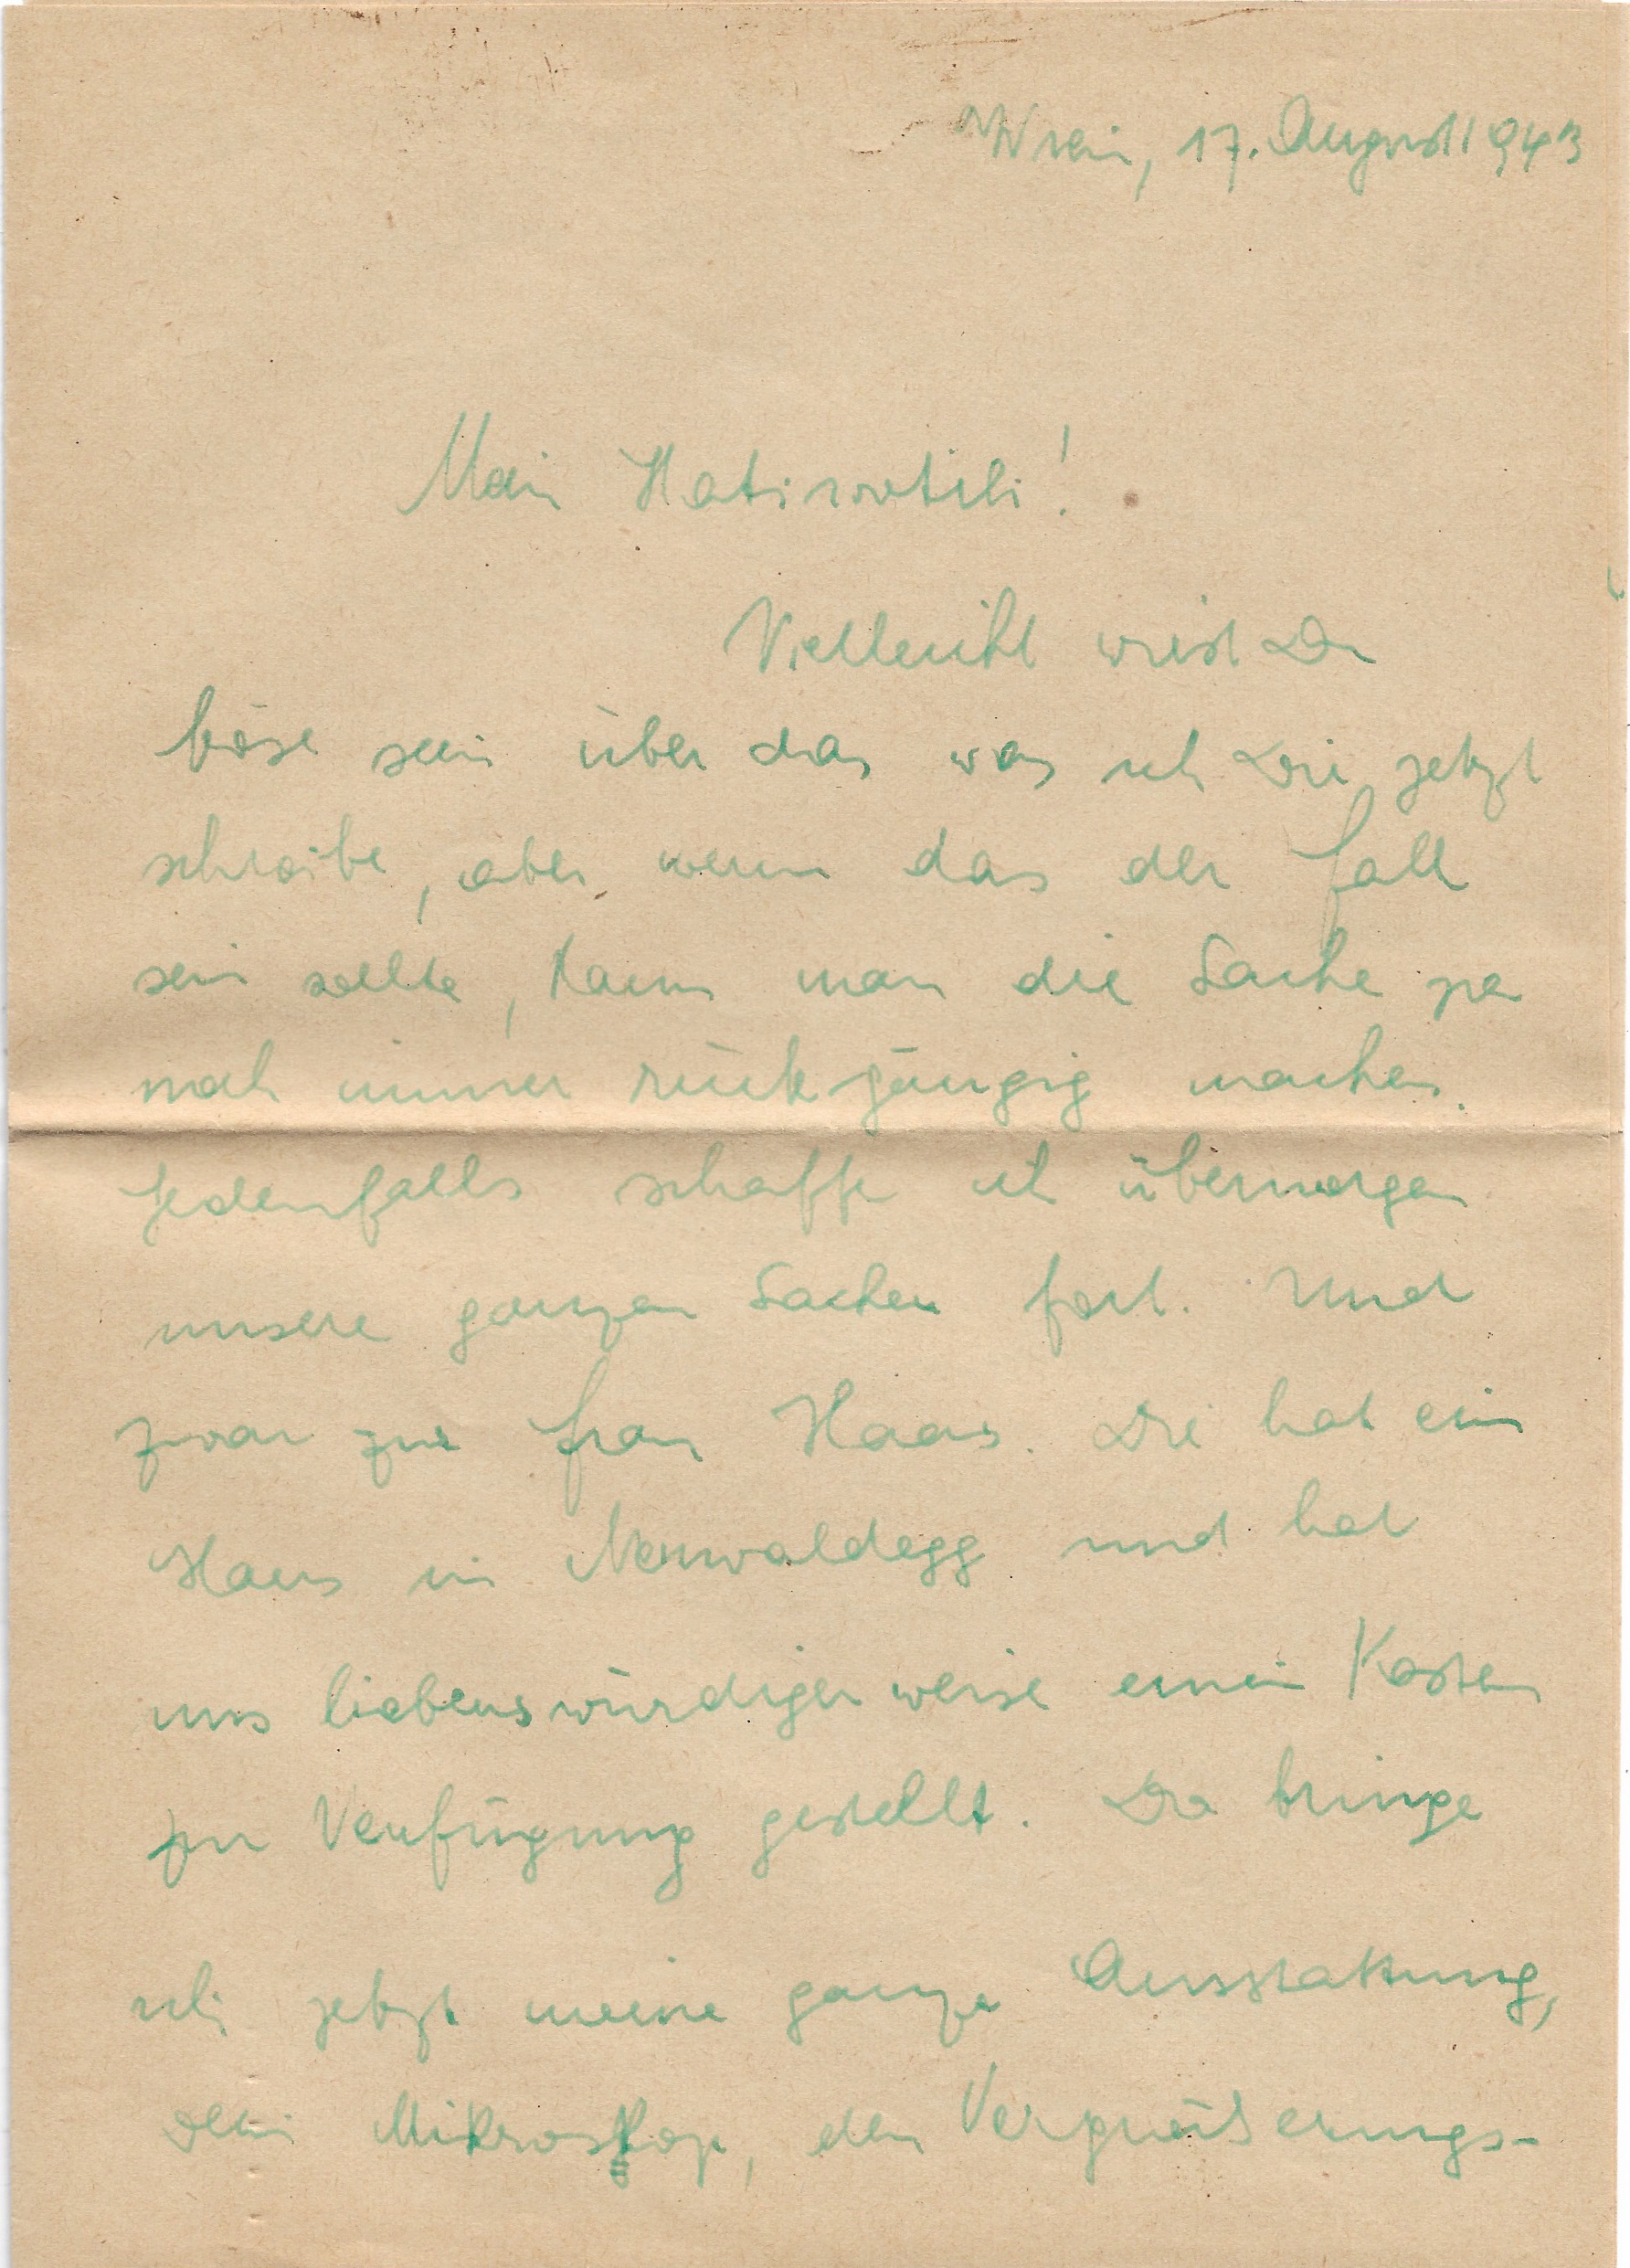 Wien, 17. August 1943
Mein
Vielleicht wirst Du
böse sein über das was ich Dir jetzt
schreibe, aber wenn das der Fall
sein sollte, kann man die Sache ja
noch immer rückgängig machen.
Jedenfalls schaffe ich übermorgen
unsere ganzen Sachen fort. Und
zwar zur Frau Haas. Die hat ein
Haus in Neuwaldegg und hat
uns liebenswürdigerweise einen Kasten
zur Verfügung gestellt. Da bringe
ich jetzt meine ganze Ausstattung,
Dein Mikroskop, den Vergrößerungs-